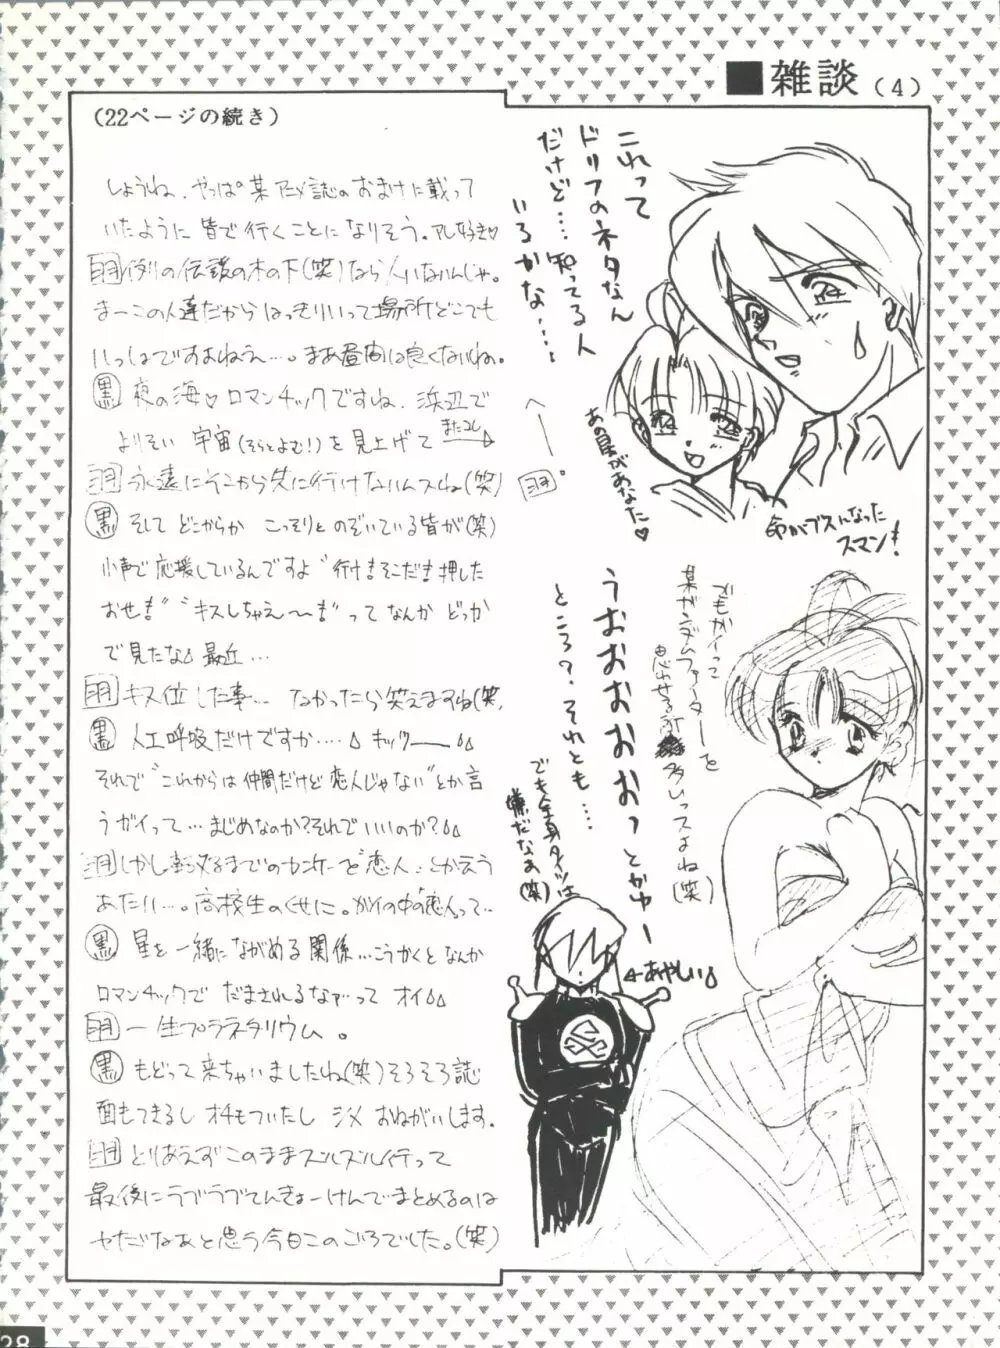 ■雑談（4）
（22ページの続き）
しょうね、やっぱ某アニメ誌のおまけに載って
いたように皆で行くことになりそう。アレ好き♡
羽 例の伝説の木の下(笑)なら人いないんじゃ。
まーこの人達だからはっきりいって場所どこでも
いっしょですよねえ…。まあ昼間は良くないね。
黒 夜の海♡ロマンチックですね、浜辺で
よりそい 宇宙(そらとよむ!)を見上げて またコレ
羽 永遠にそこから先に行けないんスね(笑)
黒 そして どこからか こっそりと のぞいている皆が(笑)
小声で応援しているんですよ"行け!そこだ!押した
おせ!""キスしちゃえ〜!"って なんか どっか
で見たな 最近…
羽 キス位した事… なかったら笑えますね(笑
黒 人工呼吸だけですか…。キック――
それで"これからは仲間だけど恋人じゃない"とか言
うガイって…まじめなのか?それでいいのか?
羽 しかし
までのカンケーを"恋人"とか言う
あたり…。高校生のくせに。ガイの中の"恋人"って…
黒 星を一緒にながめる関係…こうかくとなんか
ロマンチックで だまされるなァって オイ
羽 一生プラネタリウム。
黒 もどって来ちゃいましたね(笑)そろそろ誌
面もつきるし オチもついたし シメ おねがいします。
羽 とりあえずこのままズルズル行って
最後にラブラブてんきょーけんでまとめるのは
ヤだなあと思う今日このごろでした。(笑)
これって
ドリフのネタなん
だけど…知ってる人
いるかな……
へ――
羽
あの星があなた♡
命がブスになった
スマン!
でもガイって
某ガンダムファイターを
思わせる所
多いっスよね(笑)
うおおおおおっとかゆー
ところ?それとも…
でも全身タイツは
嫌だなあ(笑)
←あやしい
28